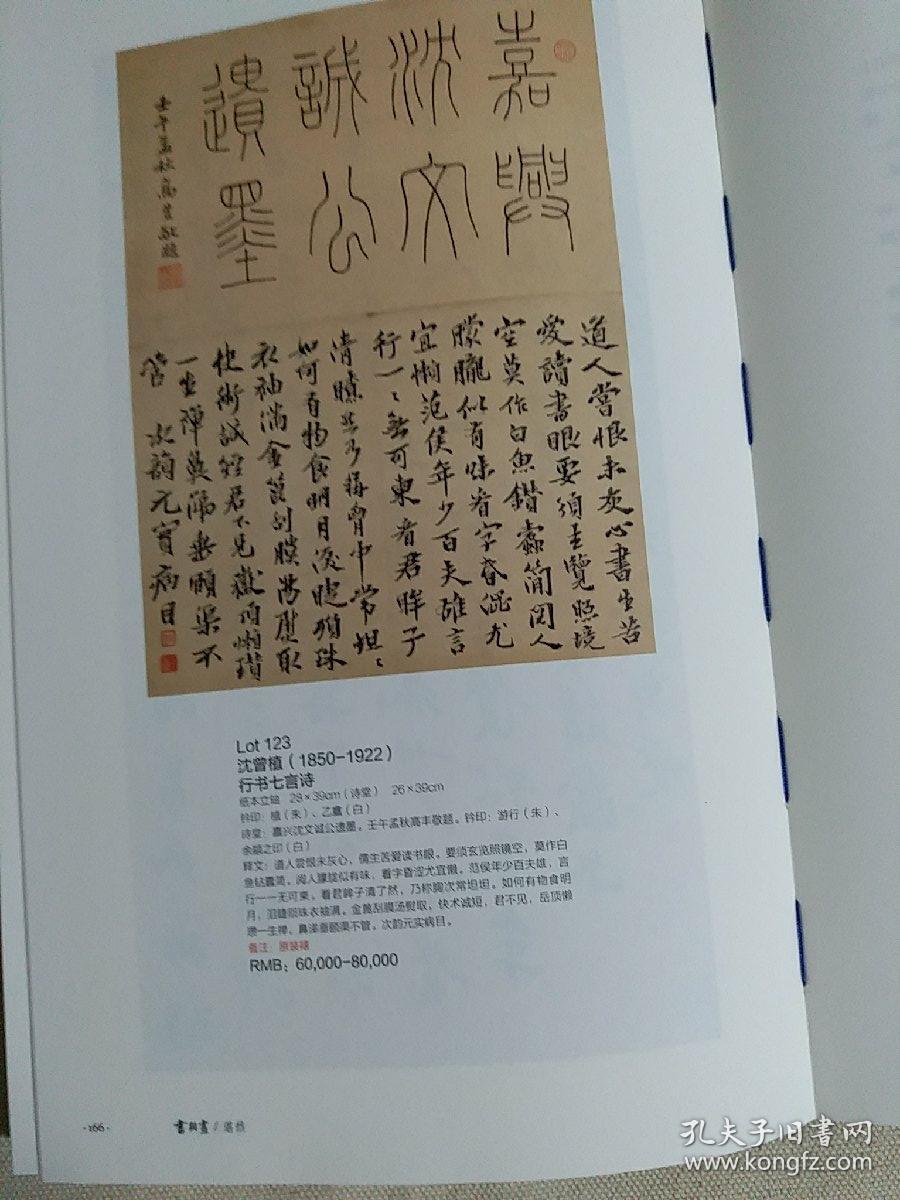 嘉興
沈文
誠公
遺墨
壬午孟秋高豐敬題
道人嘗恨未灰心書生苦
愛讀書眼要須玄覽照境
空莫作白魚鑽蠹簡閱人
朦朧似有味看字昏澀尤
宜懶范侯年少百夫雄言
行一一無可柬看君眸子
清瞭然乃稱胷中常坦坦
如何有物食明月淚睫殞珠
衣袖滿金篦刮膜
一生禪鼻涕垂頤渠不
管 次韵元實病目
Lot 123
沈曾植(1850-1922)
行书七言诗
纸本立轴 28×39cm(诗堂) 26×39cm
钤印:植(朱)、乙盦(白)
诗堂:嘉兴沈文诚公遗墨。壬午孟秋高丰敬题。钤印:游行(朱)、
余颖之印(白)
释文:道人尝恨未灰心,儒生苦爱读书眼。要须玄览照镜空,莫作白
鱼钻蠹简。阅人朦胧似有味,看字昏涩尤宜懒。范侯年少百夫雄,言
行一一无可柬。看君眸子清了然,乃称胸次常坦坦。如何有物食明
月,泪睫陨珠衣袖满。金篦刮膜汤熨取,快术减短,君不见,岳顶懒
瓒一生禅,鼻涕垂颐渠不管。次韵元实病目。
备注:原装裱
RMB: 60,000-80,000
·166·
書與畫
孔夫子旧書网
www.kongfz.com